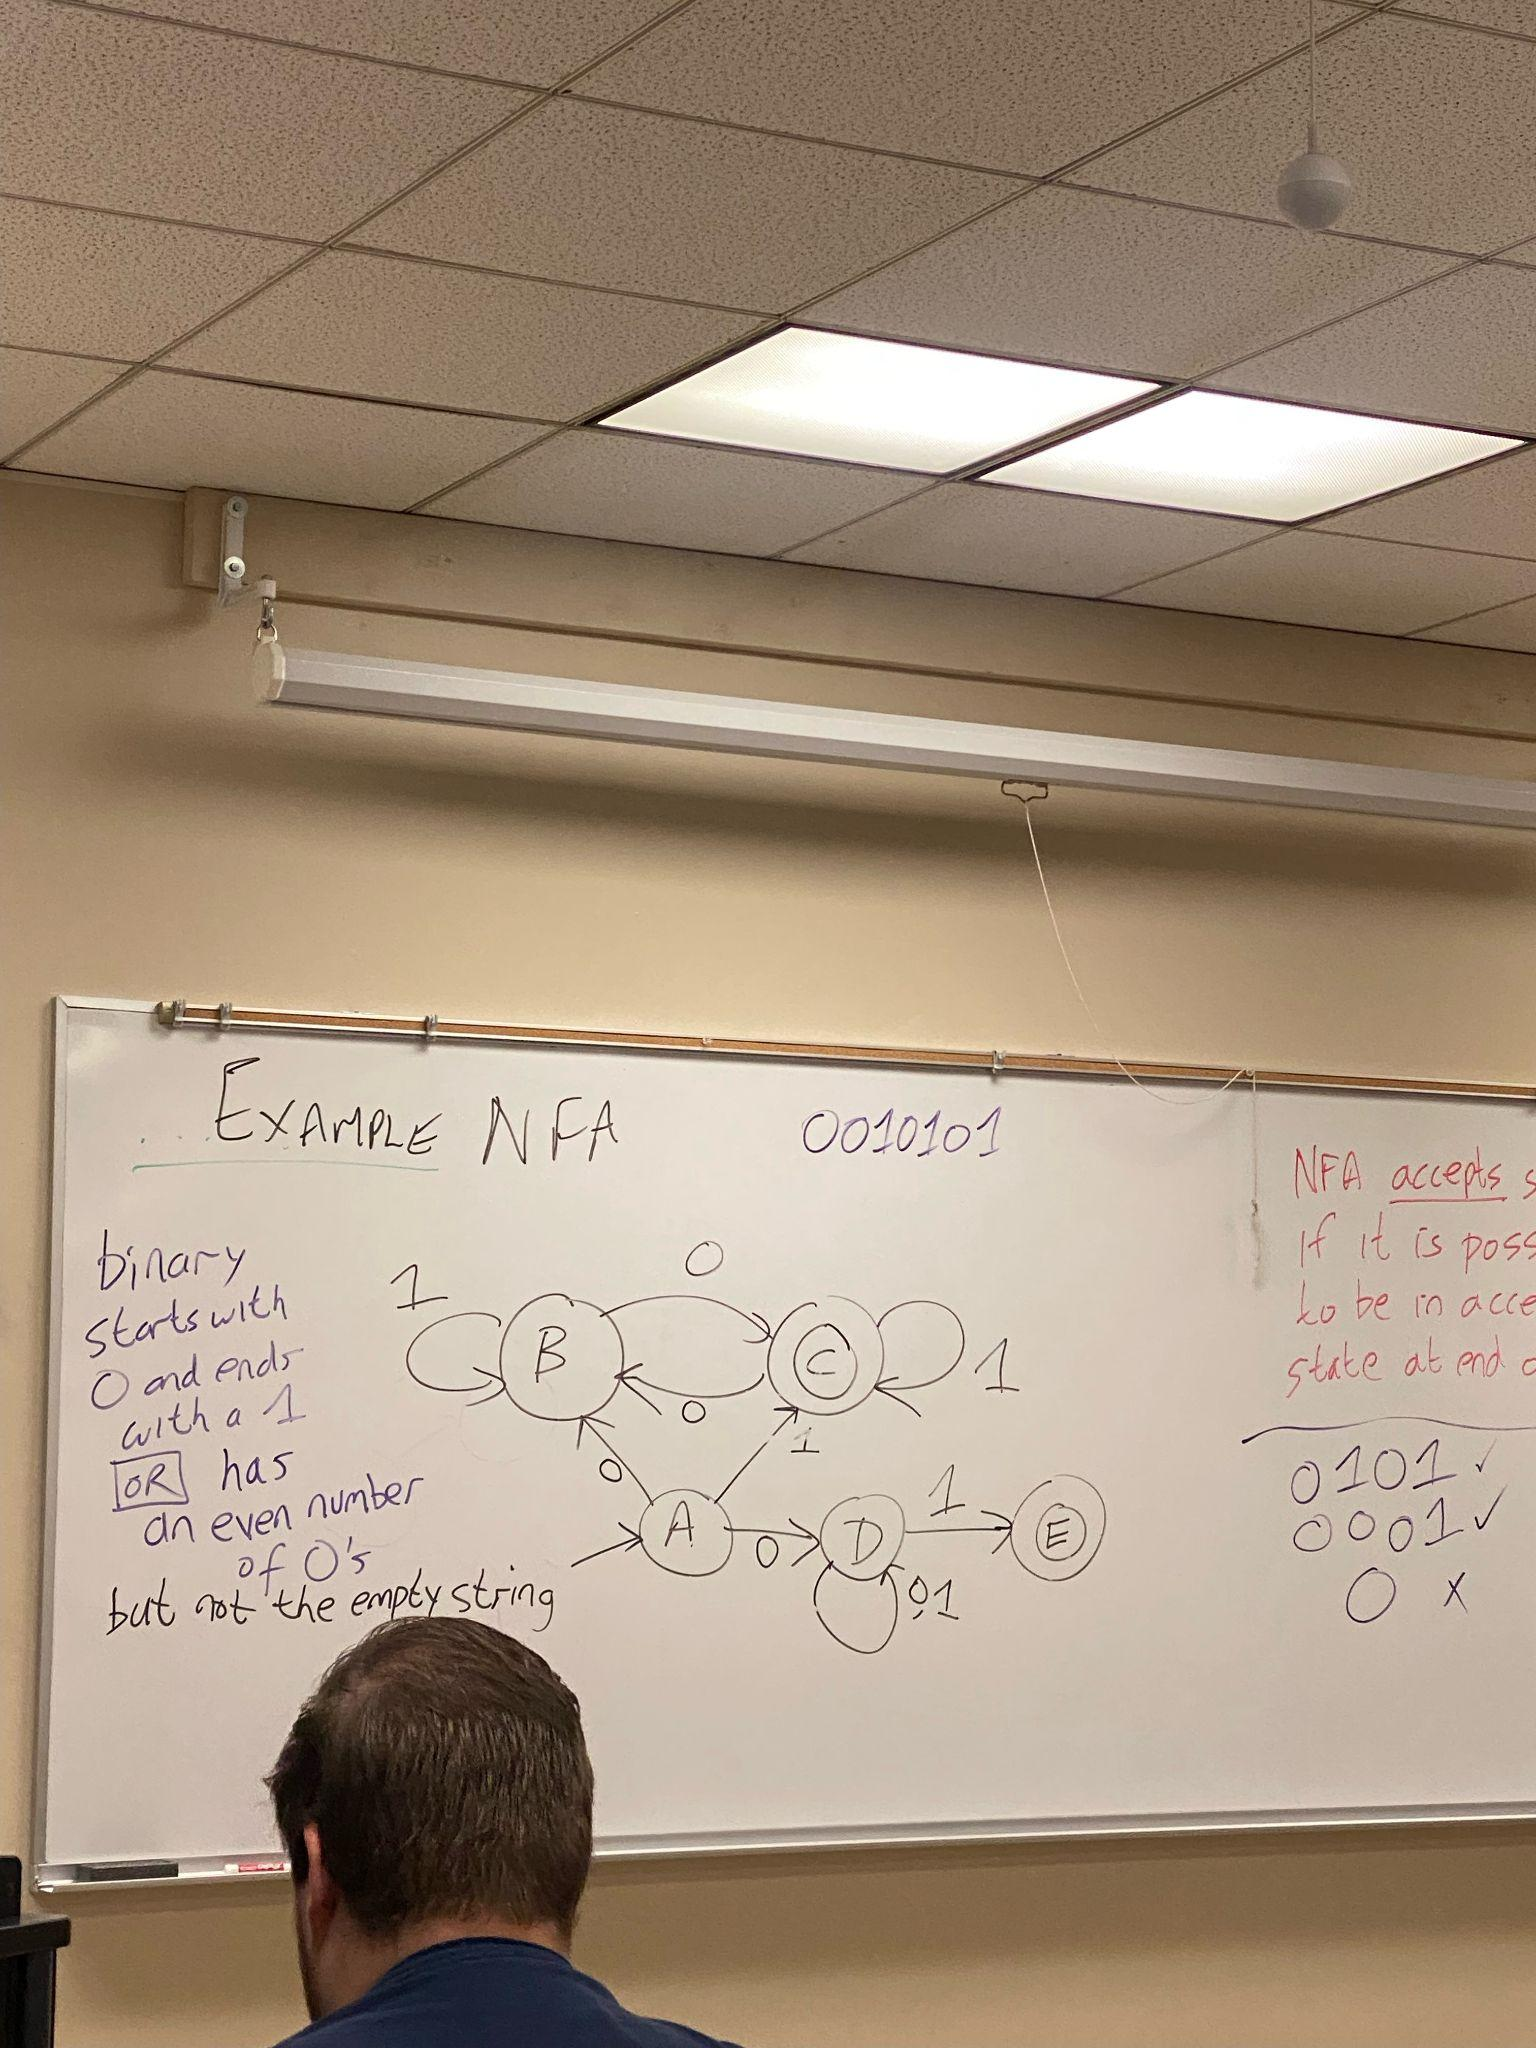 EXAMPLE NFA
0010101
binary
starts with
0 and ends
with a 1
OR has
an even number
of 0's
but not the empty string
1
0
B
C
1
0
0
1
A
0
D
1
E
0,1
NFA accepts
if it is
to be in
state at end
0101 ✓
0001 ✓
0 x